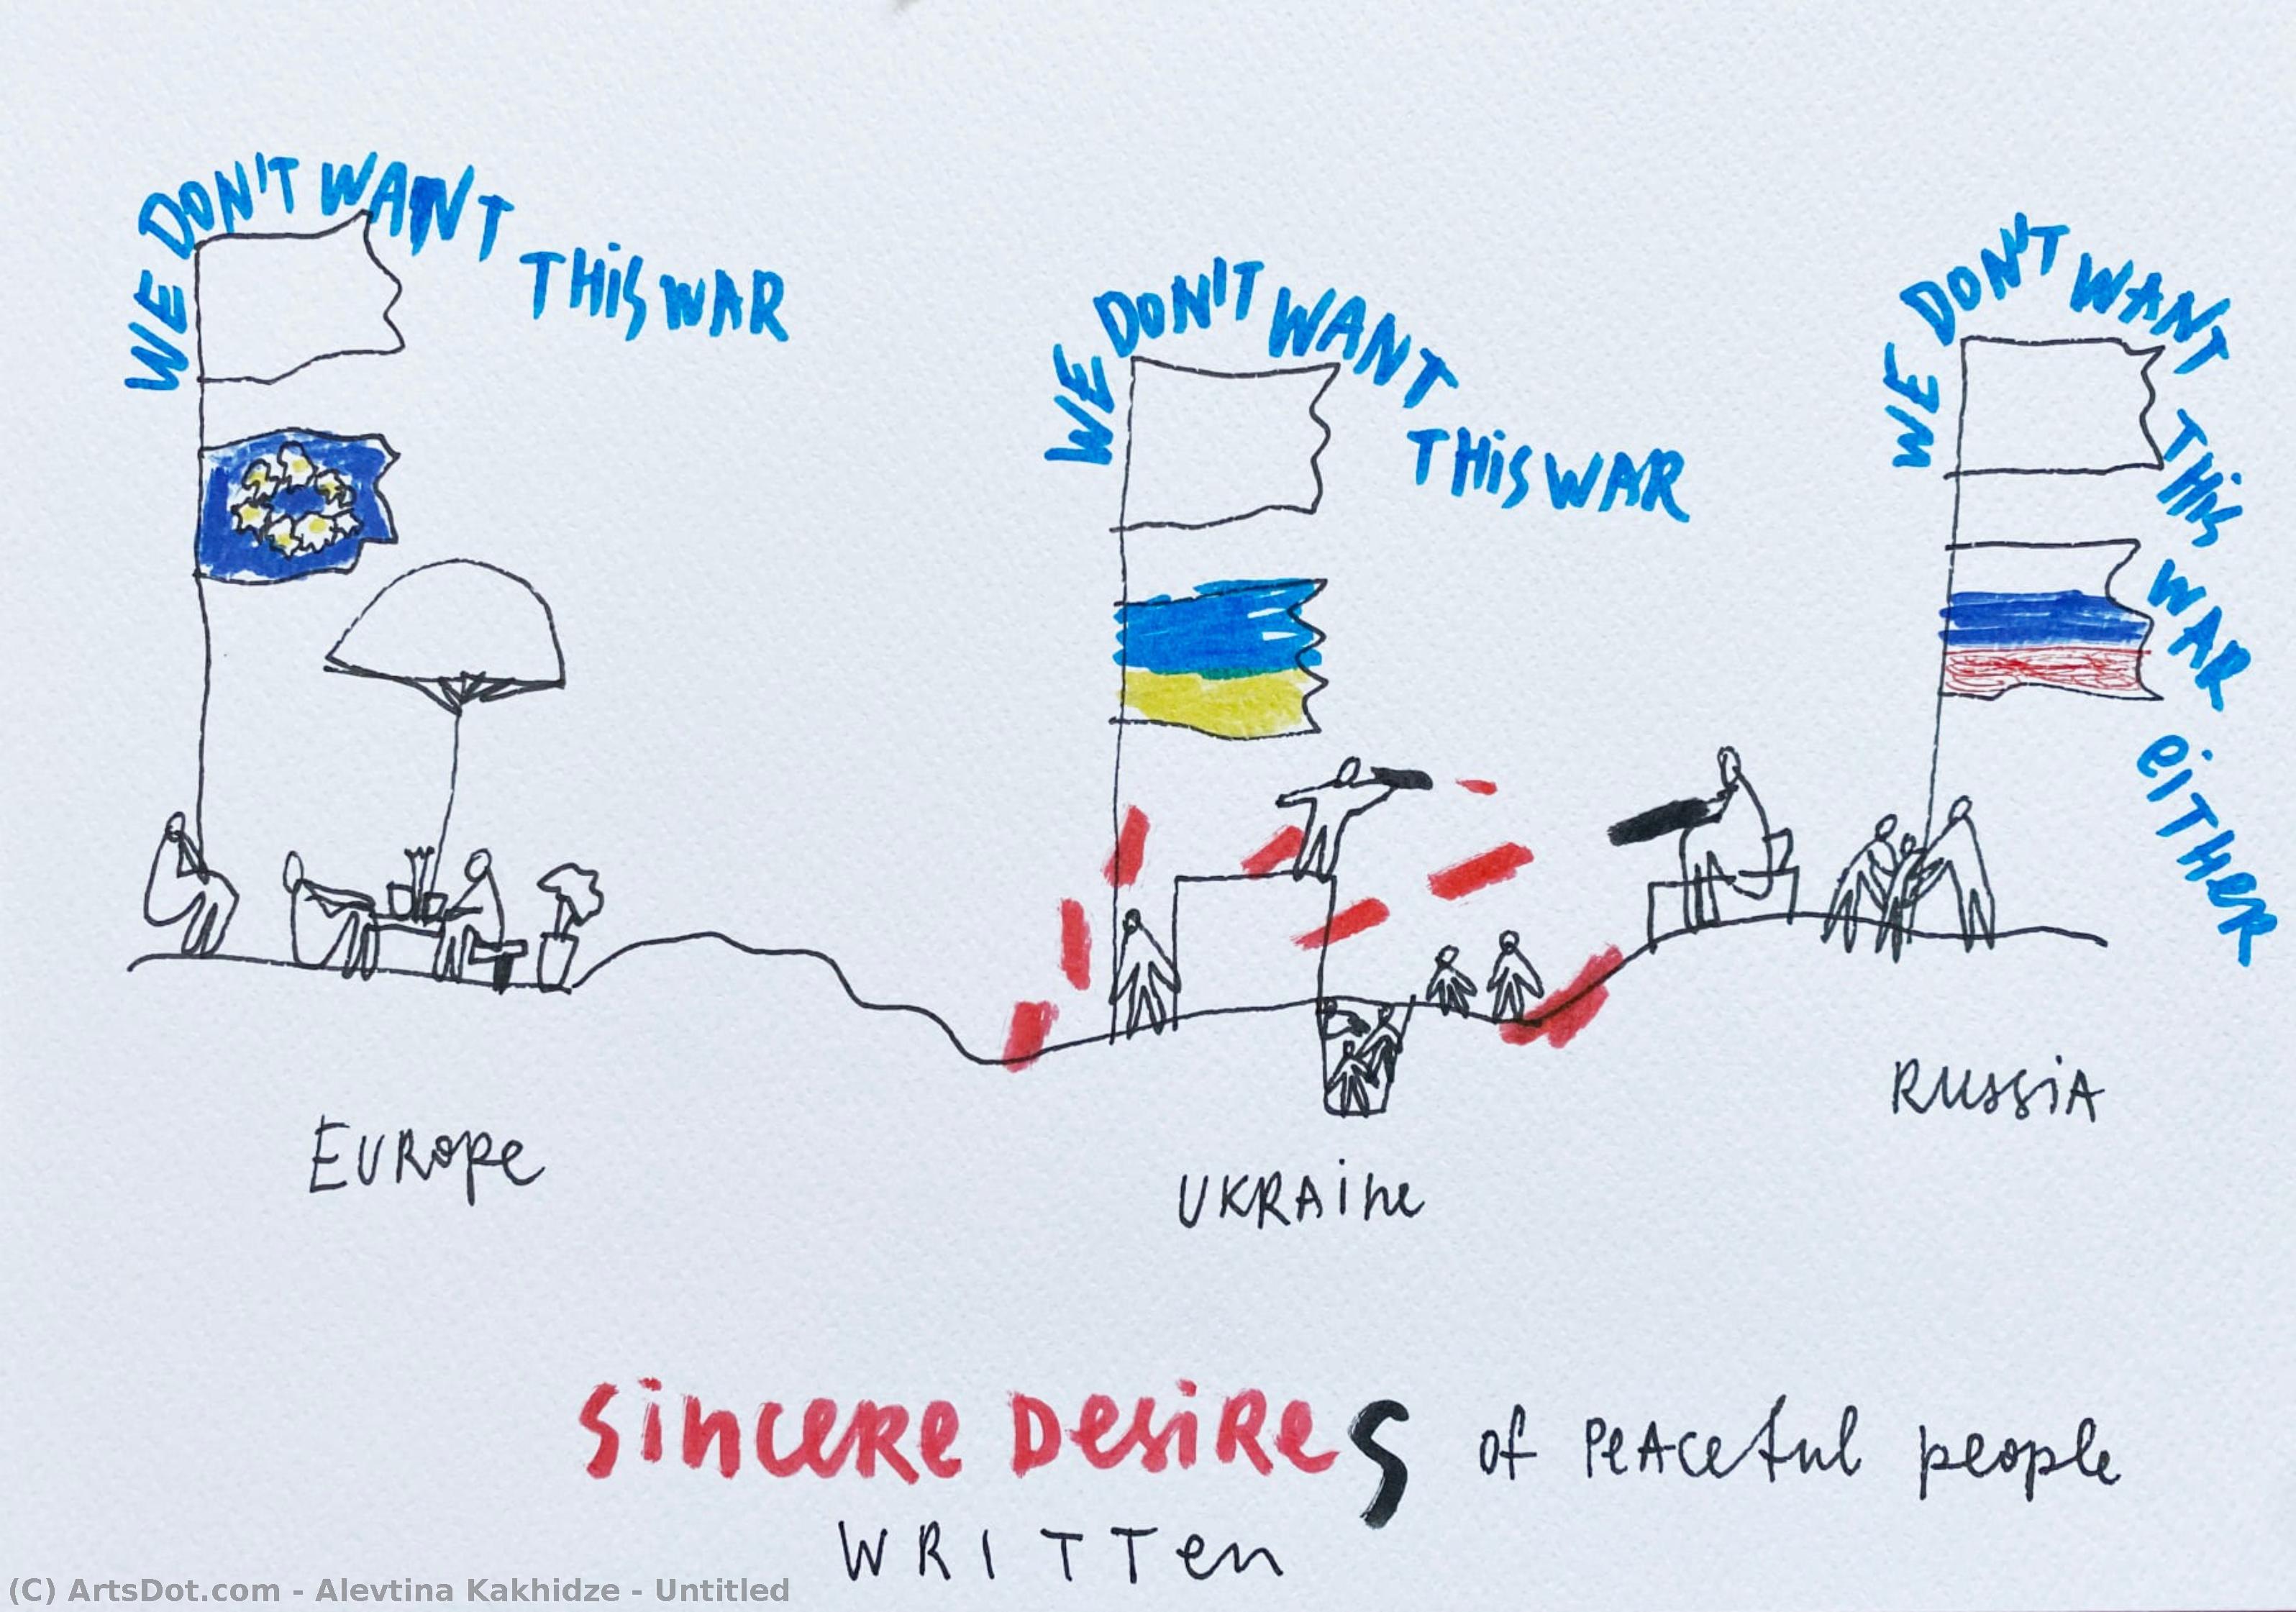 WE DON'T WANT THiS WAR
WE DON'T WANT THiS WAR
WE DON'T WANT THiS WAR eiTHeR
EUROpe
UKRAine
RussiA
Sincere Desires of peaceful people
WRITTen
(C) ArtsDot.com - Alevtina Kakhidze - Untitled